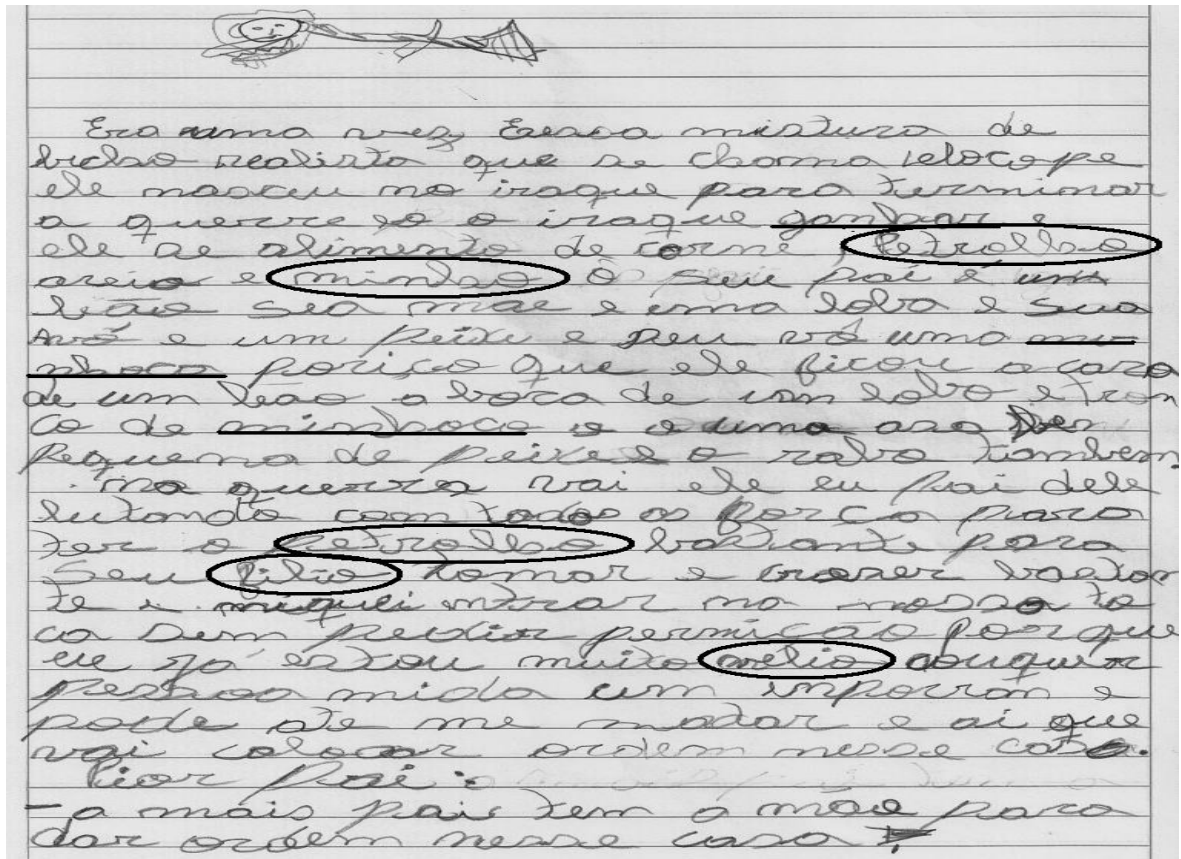 Era uma vez, Essa mistura de
bicho realista que se chama
ele nasceu no iraque para terminar
a querre o iraque ganhar e
ele se alimenta de carne, Petrolho
areia e minho o seu pai é um
leão sea mãe e uma loba e sua
Avó e um peixe e seu vô uma mi
nhoca poriço que ele ficou a cara
de um leão a boca de um lobo e tron
co de minhoca e uma asa
Pequena de peixe e o rabo tambem
na querra vai ele eu pai dele
lutando com todos as força para
ter o petrolho bastante para
seu filio tomar e trazer bastan
te e entrar na nossa to
ca sem pedir permição Porque
eu já estou muito velio
pessoa mida um imporrán e
pode ate me matar e ai que
vai colocar ordem nesse casa.
pai :
– a mais pai tem a mãe para
dar ordem nesse casa